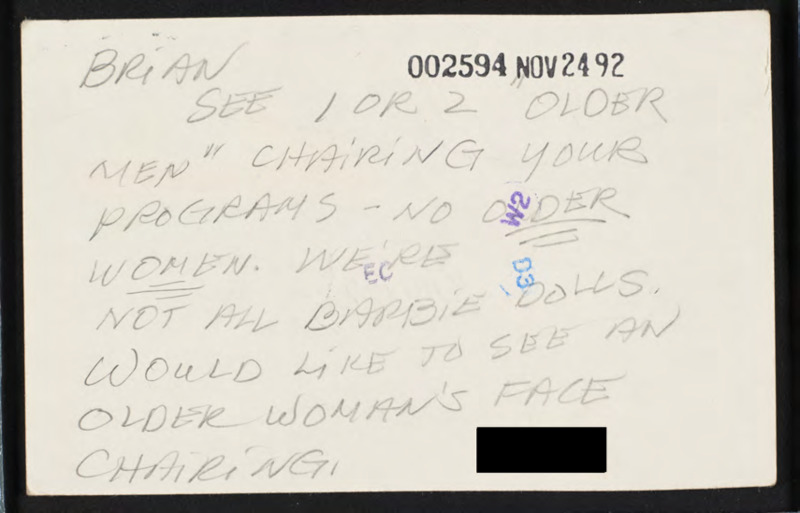 BRIAN
002594 NOV 24 92
SEE 1 OR 2 "OLDER
MEN" CHAIRING YOUR
PROGRAMS - NO OLDER
W2
WOMEN. WE'RE
EC
D3
NOT ALL BARBIE DOLLS.
WOULD LIKE TO SEE AN
OLDER WOMAN'S FACE
CHAIRING.